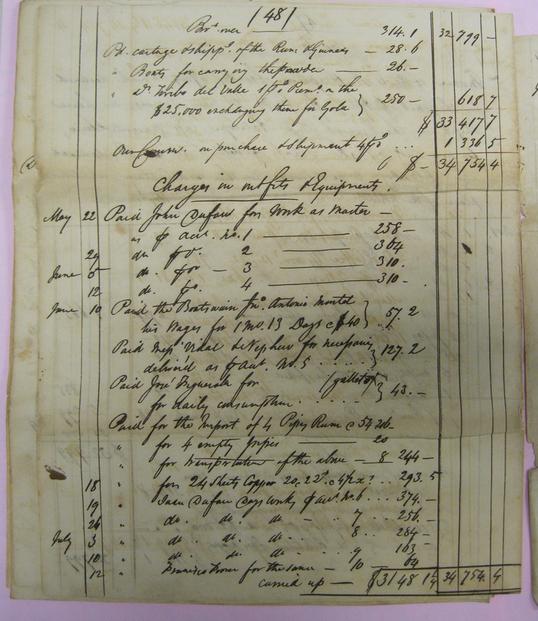 /48/
Bro. over — 314.1 32 799 —
Pd. cartage & shippg. of the Rum & Guineas — 28.6
" Boats for carrying the powder — 26.–
" Do. del Valle 1 pCt. Prem. on the
$25.000 exchanging them for Gold } 250 — 618 7
$ 33 417 7
Our Comn. on purchase & shipment 4 pCt. ... 1 336 5
$ – 34 754 4
Charges in outfits & Equipments.
May 22 Paid John Dufau for Work as Master —
as p Acct. No. 1 — 258 –
29 do. 2 — 304
June 5 do. — 3 — 310.
12 do. 4 — 310 –
June 10 Paid the Boatswain Antonio
his Wages for 1 mo. 13 Days @ $40 } 57.2
Paid Messrs. Vidal & Nephew for necessaries
deliver'd as p Acct. No. 5 ..... } 127.2
Paid José for
for daily consumption ..... } 43.–
Paid for the Import of 4 Pipes Rum @
" for 4 empty Pipes — 20
" for transportation of the above — 8 244 –
18 " for 24 Sheets Copper 293.5
19 " Juan Dufau Days work, p Acct. No. 6 .. 374.–
26 " do. do. do. — 7 .. 256.–
July 3 " do. do. do. 8 .. 284 –
10 " do. do. do. 9 163
12 " Francisco for the same — 10 — 64
carried up — $3148 34 754 4